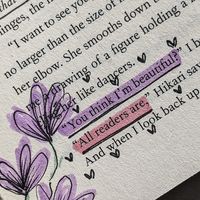 hinges, the
"I want to see yo
no larger than the size of
her elbow. She smooths down
drawing of a figure holding a
like dancers.
"You think I'm beautiful?" I b
"All readers are," Hikari sai
And when I look back up